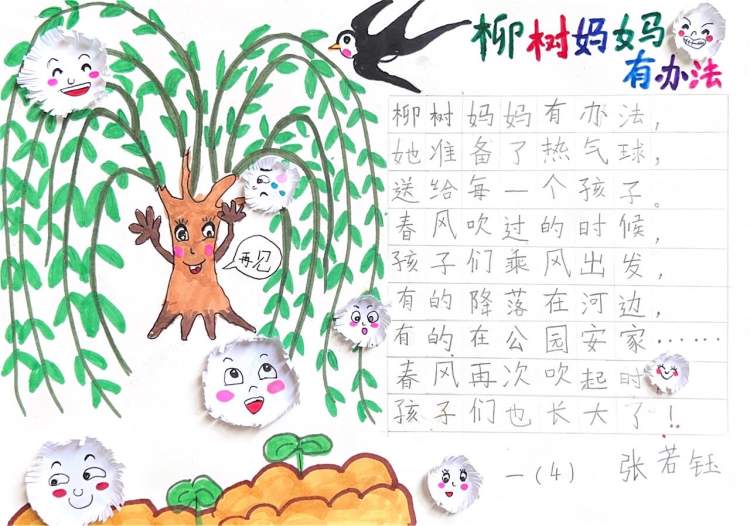 柳树妈妈
有办法
柳树妈妈有办法,
她准备了热气球,
送给每一个孩子。
春风吹过的时候,
孩子们乘风出发,
有的降落在河边,
有的在公园安家……
春风再次吹起时,
孩子们也长大了!
一(4) 张若钰
再见